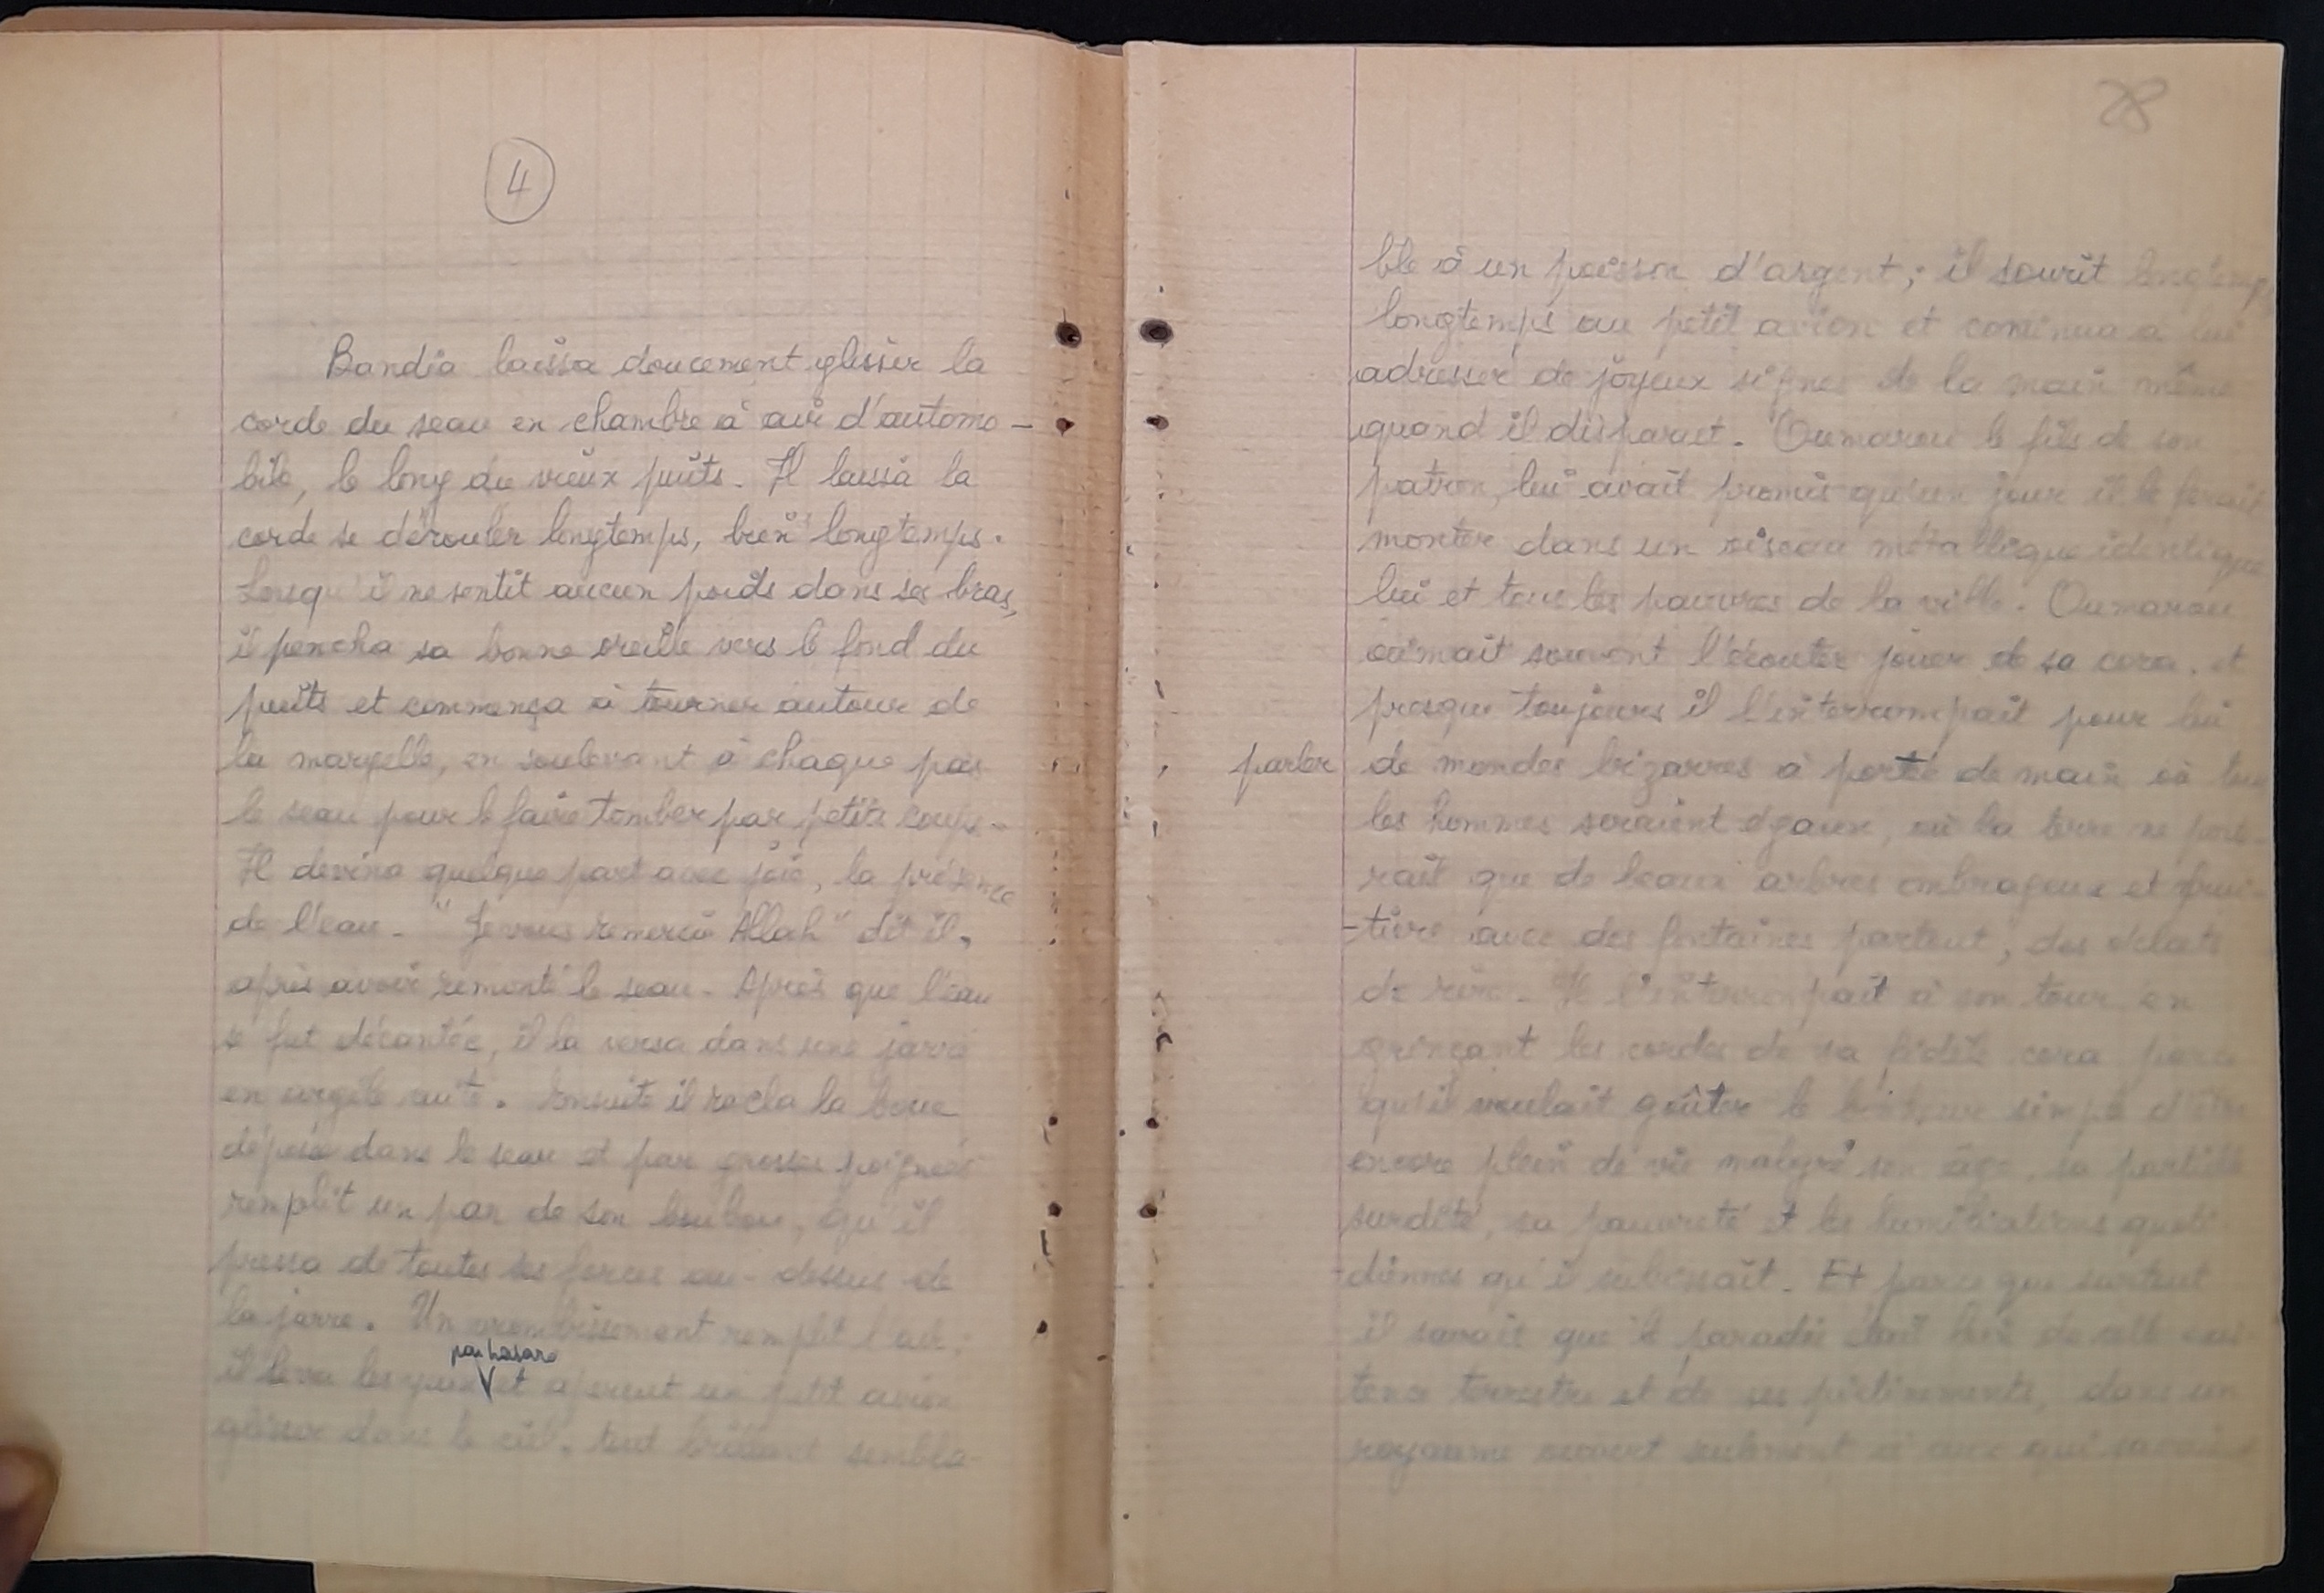 4
Bandia laissa doucement glisser la
corde du seau en chambre à air d'automo-
bile, le long du vieux puits. Il laissa la
corde se dérouler longtemps, bien longtemps.
Lorsqu'il ne sentit aucun poids dans ses bras,
il pencha sa bonne oreille vers le fond du
puits et commença à tourner autour de
la margelle, en soulevant à chaque pas
le seau pour le faire tomber par petits coups.
Il devina quelque part avec joie, la présence
de l'eau. "Je vous remercie Allah" dit il,
après avoir remonté le seau. Après que l'eau
se fut décantée, il la versa dans une jarre
en argile cuite. Ensuite il racla la boue
déposée dans le seau et par grosses poignées
remplit un pan de son boubou, qu'il
pressa de toutes ses forces au-dessus de
la jarre. Un vrombissement remplit l'air,
par hasard
il leva les yeux et aperçut un petit avion
glisser dans le ciel, tout brillant sembla-
28
ble à un poisson d'argent; il sourit longtemps
longtemps au petit avion et continua à lui
adresser de joyeux signes de la main même
quand il disparut. Oumarou le fils de son
patron, lui avait promis qu'un jour il le ferait
monter dans un oiseau métallique identique
lui et tous les pauvres de la ville. Oumarou
aimait souvent l'écouter jouer de sa cora. et
presque toujours il l'interrompait pour lui
parler de mondes bizarres à portée de main où tous
les hommes seraient égaux, où la terre ne porte-
rait que de beaux arbres ombrageux et frui-
-tiers avec des fontaines partout, des éclats
de rire. Il l'interrompait à son tour en
grinçant les cordes de sa fidèle cora parce
qu'il voulait goûter le bonheur simple d'être
encore plein de vie malgré son âge, sa partielle
surdité, sa pauvreté et les humiliations quoti-
-diennes qu'il subissait. Et parce que surtout
il savait que le paradis était hors de cette exis-
tence terrestre et de ses piétinements, dans un
royaume ouvert seulement à ceux qui